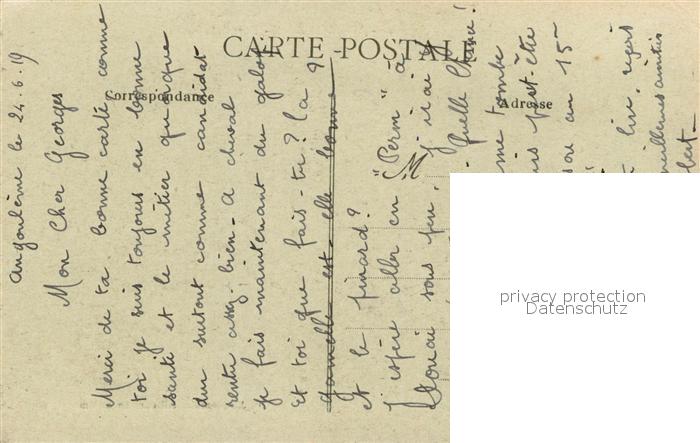 CARTE POSTALE
Correspondance
Adresse
M
Angoulême le 24.6.19
Mon Cher Georges
Merci de ta bonne carte comme
toi je suis toujours en bonne
santé et le métier quoique
dur surtout comme candidat
rentre assez bien - A cheval
je fais maintenant du galop
Et toi que fais-tu? La
gamelle est-elle bonne ?
et le pinard?
J'espère aller en "Perm" à
Douai sous peu. j'irai
Quelle Chance!
tombe
peut-être
ou 15
lire, reçois
meilleures amitiés
privacy protection
Datenschutz